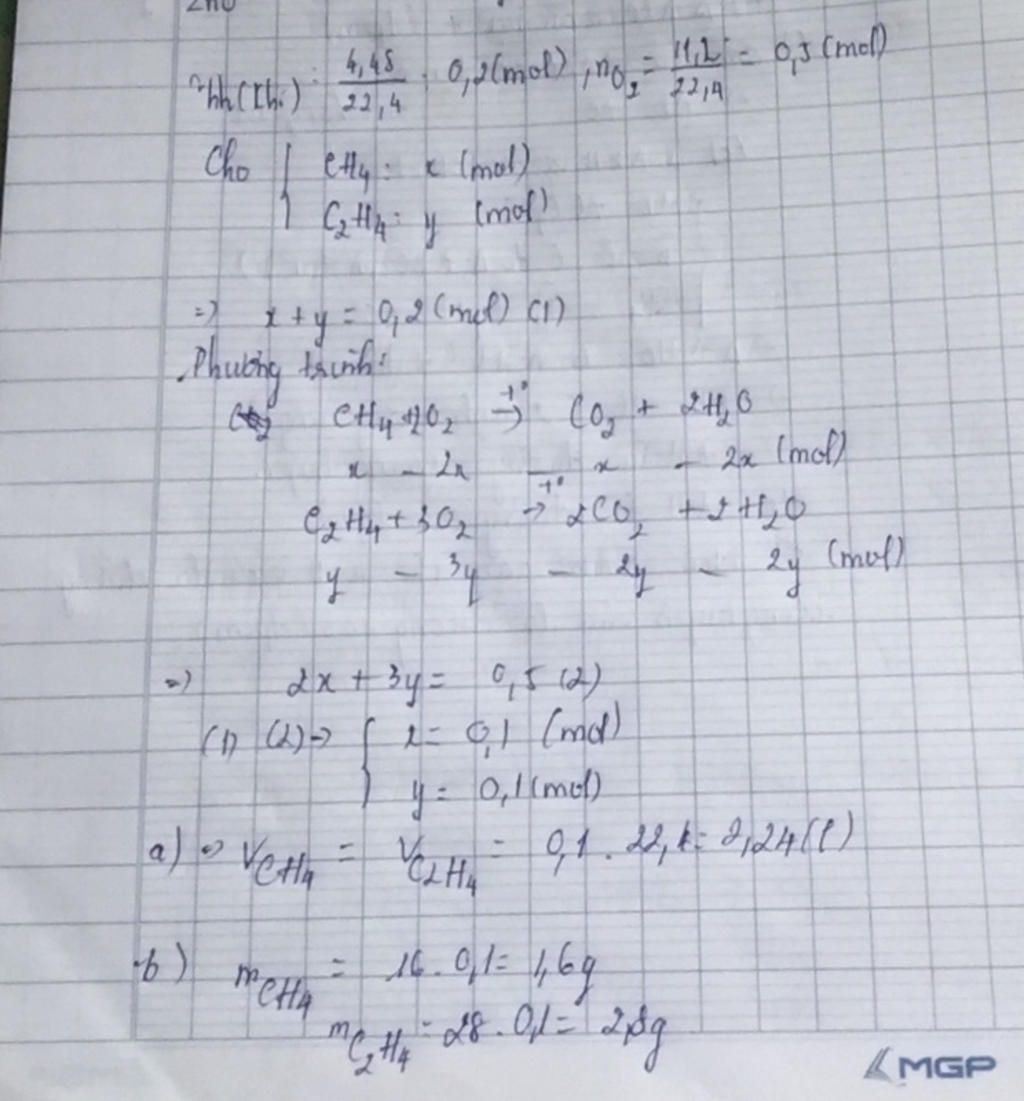 n hh(khí) = 4,48/22,4 = 0,2(mol), nO₂ = 11,2/22,4 = 0,5(mol)
Cho { CH₄: x (mol)
C₂H₄: y (mol)
=> x + y = 0,2 (mol) (1)
Phương trình:
CH₄ + 2O₂ →t° CO₂ + 2H₂O
x – 2x – x – 2x (mol)
C₂H₄ + 3O₂ →t° 2CO₂ + 2H₂O
y – 3y – 2y – 2y (mol)
=> 2x + 3y = 0,5 (2)
(1) (2) → { x = 0,1 (mol)
y = 0,1 (mol)
a) => VCH₄ = VC₂H₄ = 0,1 . 22,4 = 2,24 (l)
b) mCH₄ = 16 . 0,1 = 1,6g
mC₂H₄ = 28 . 0,1 = 2,8g
MGP